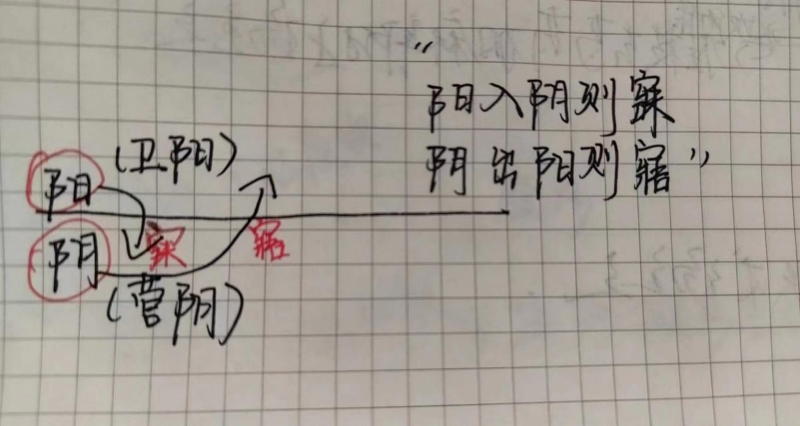 “
阳入阴则寐
阴出阳则寤”
(卫阳)
阳
寐 寤
阴
(营阴)